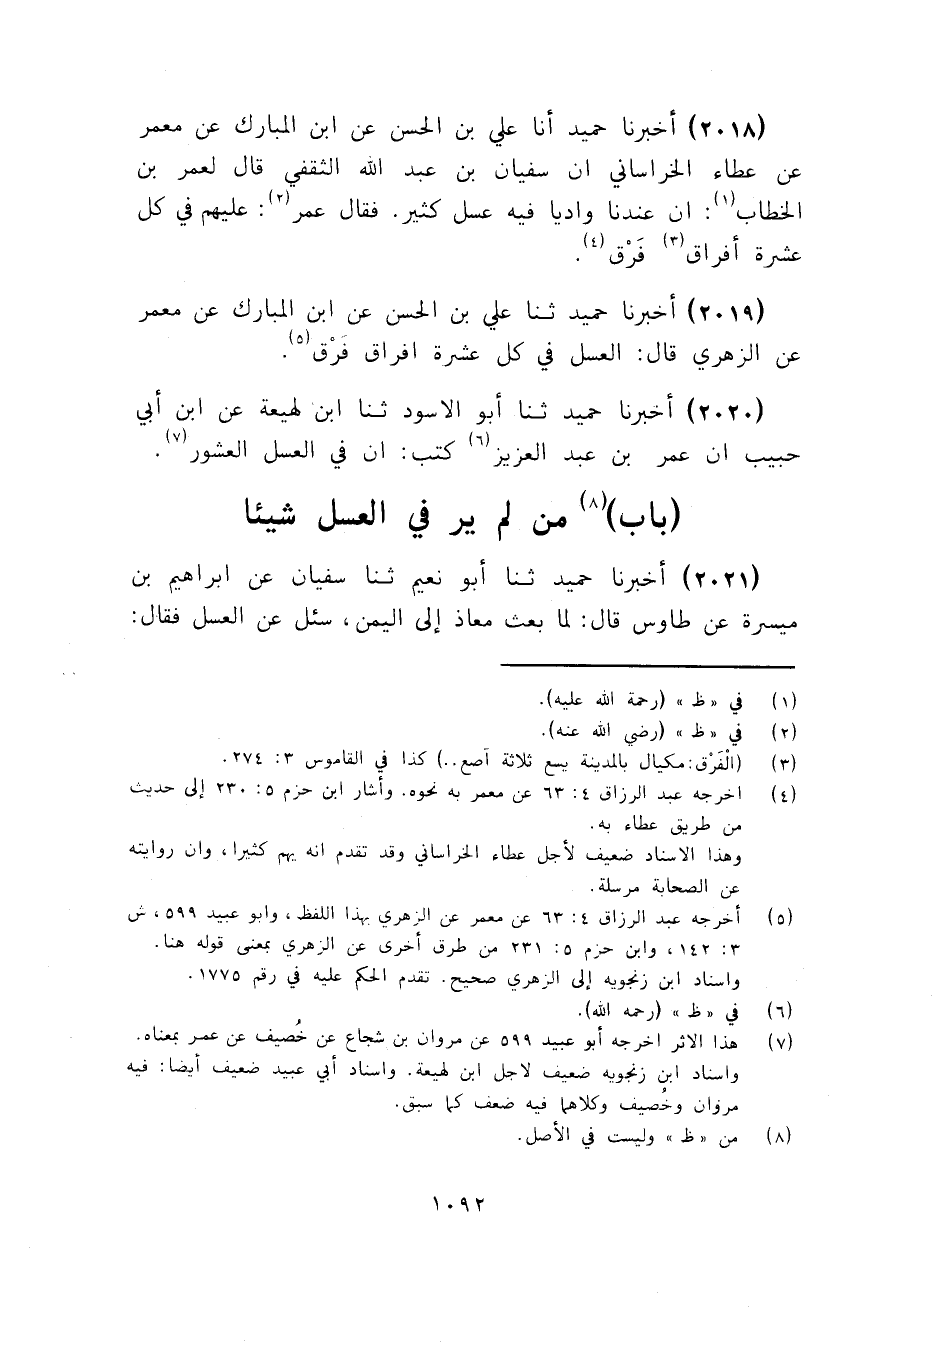 (٢٠١٨) أخبرنا حميد أنا علي بن الحسن عن ابن المبارك عن معمر
عن عطاء الخراساني ان سفيان بن عبد الله الثقفي قال لعمر بن
الخطاب(١): ان عندنا واديا فيه عسل كثير. فقال عمر(٢): عليهم في كل
عشرة أفراق(٣) فَرْق(٤).
(٢٠١٩) أخبرنا حميد ثنا علي بن الحسن عن ابن المبارك عن معمر
عن الزهري قال: العسل في كل عشرة افراق فَرْق(٥).
(٢٠٢٠) أخبرنا حميد ثنا أبو الاسود ثنا ابن لهيعة عن ابن أبي
حبيب ان عمر بن عبد العزيز(٦) كتب: ان في العسل العشور(٧).
(باب)(٨) من لم ير في العسل شيئا
(٢٠٢١) أخبرنا حميد ثنا أبو نعيم ثنا سفيان عن ابراهيم بن
ميسرة عن طاوس قال: لما بعث معاذ إلى اليمن، سئل عن العسل فقال:
(١) في «ظ» (رحمة الله عليه).
(٢) في «ظ» (رضي الله عنه).
(٣) (الْفَرْق: مكيال بالمدينة يسع ثلاثة آصع..) كذا في القاموس ٣: ٢٧٤.
(٤) اخرجه عبد الرزاق ٤: ٦٣ عن معمر به نحوه. وأشار ابن حزم ٥: ٢٣٠ إلى حديث
من طريق عطاء به.
وهذا الاسناد ضعيف لأجل عطاء الخراساني وقد تقدم انه يهم كثيرا، وان روايته
عن الصحابة مرسلة.
(٥) أخرجه عبد الرزاق ٤: ٦٣ عن معمر عن الزهري بهذا اللفظ، وابو عبيد ٥٩٩، ش
٣: ١٤٢، وابن حزم ٥: ٢٣١ من طرق أخرى عن الزهري بمعنى قوله هنا.
واسناد ابن زنجويه إلى الزهري صحيح. تقدم الحكم عليه في رقم ١٧٧٥.
(٦) في «ظ» (رحمه الله).
(٧) هذا الاثر اخرجه أبو عبيد ٥٩٩ عن مروان بن شجاع عن خُصيف عن عمر بمعناه.
واسناد ابن زنجويه ضعيف لاجل ابن لهيعة. واسناد أبي عبيد ضعيف أيضا: فيه
مروان وخُصيف وكلاهما فيه ضعف كما سبق.
(٨) من «ظ» وليست في الأصل.
١٠٩٢